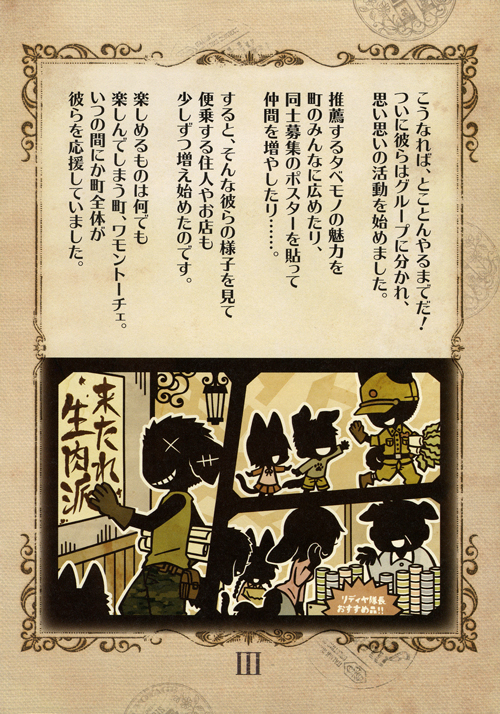 こうなれば、とことんやるまでだ！
ついに彼らはグループに分かれ、
思い思いの活動を始めました。
推薦するタベモノの魅力を
町のみんなに広めたり、
同士募集のポスターを貼って
仲間を増やしたり……。
すると、そんな彼らの様子を見て
便乗する住人やお店も
少しずつ増え始めたのです。
楽しめるものは何でも
楽しんでしまう町、ワモントーチェ。
いつの間にか町全体が
彼らを応援していました。
来たれ
生肉派
リディヤ隊長
おすすめ品!!
III